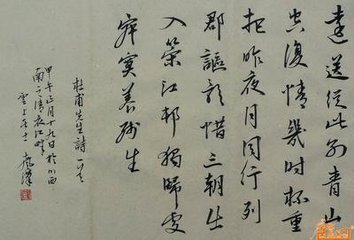 遠送從此别青山
空復情幾時杯重
把昨夜月同行列
郡謳歌惜三朝出
入榮江村獨歸處
寂寞養殘生
杜甫先生詩一首
甲午正月十九日於川西